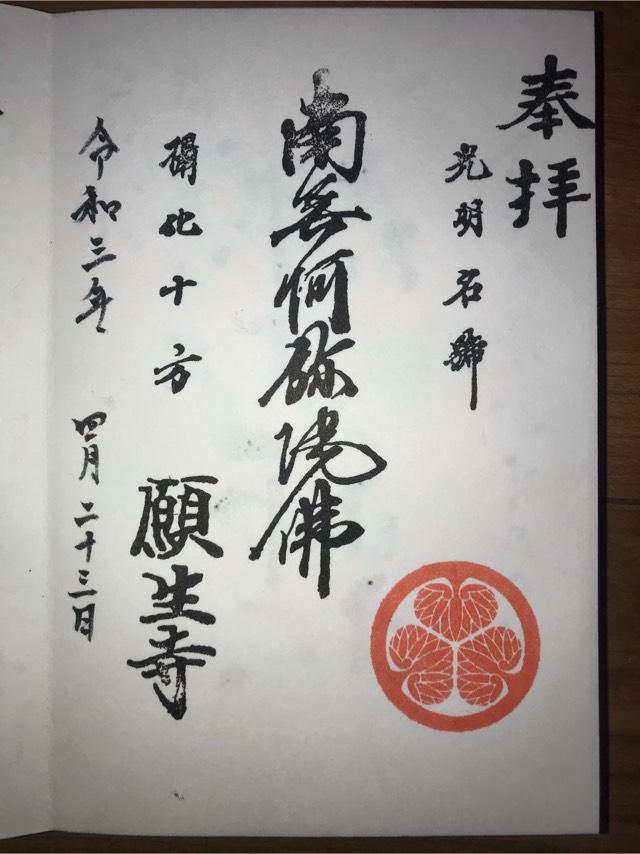 奉拝
光明名號
南無阿弥陀佛
攝化十方
願生寺
令和三年 四月二十三日